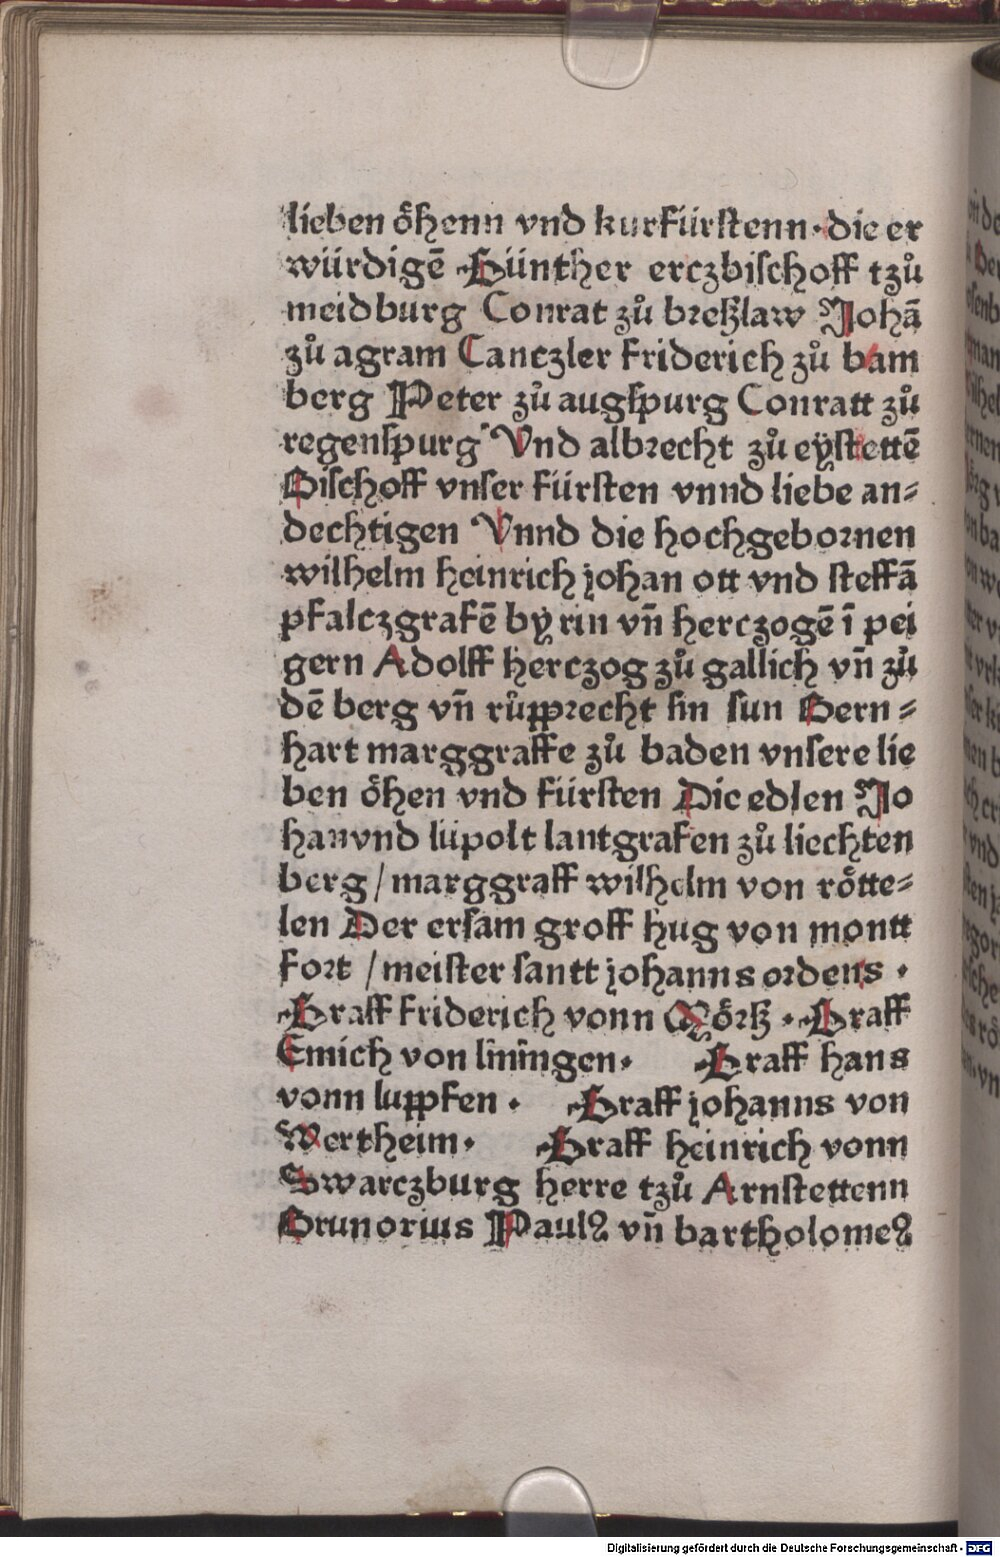 lieben oͤhenn vnd kurfürstenn· die er
würdigē Günther erczbischoff tzů
meidburg Conrat zů breßlaw Johā
zů agram Canczler friderich zů bam
berg Peter zů augspurg Conratt zů
regenspurg Vnd albrecht zů eystettē
Bischoff vnser fürsten vnnd liebe an⸗
dechtigen Vnnd die hochgebornen
wilhelm heinrich johan ott vnd steffā
pfalczgrafē by rin vñ herczogē ī pei
gern Adolff herczog zů gallich vñ zů
dē berg vñ růpprecht sin sun Bern⸗
hart marggraffe zů baden vnsere lie
ben oͤhen vnd fürsten Die edlen Jo
han vnd lüpolt lantgrafen zů liechten
berg / marggraff wilhelm von roͤtte⸗
len Der ersam groff hug von montt
fort / meister santt johanns ordens ·
Graff friderich vonn Moͤrß · Graff
Emich von liningen· Graff hans
vonn lupfen · Graff johanns von
Wertheim· Graff heinrich vonn
Swarczburg herre tzů Arnstettenn
Brunorius Paulꝰ vñ bartholomeꝰ
Digitalisierung gefördert durch die Deutsche Forschungsgemeinschaft - DFG